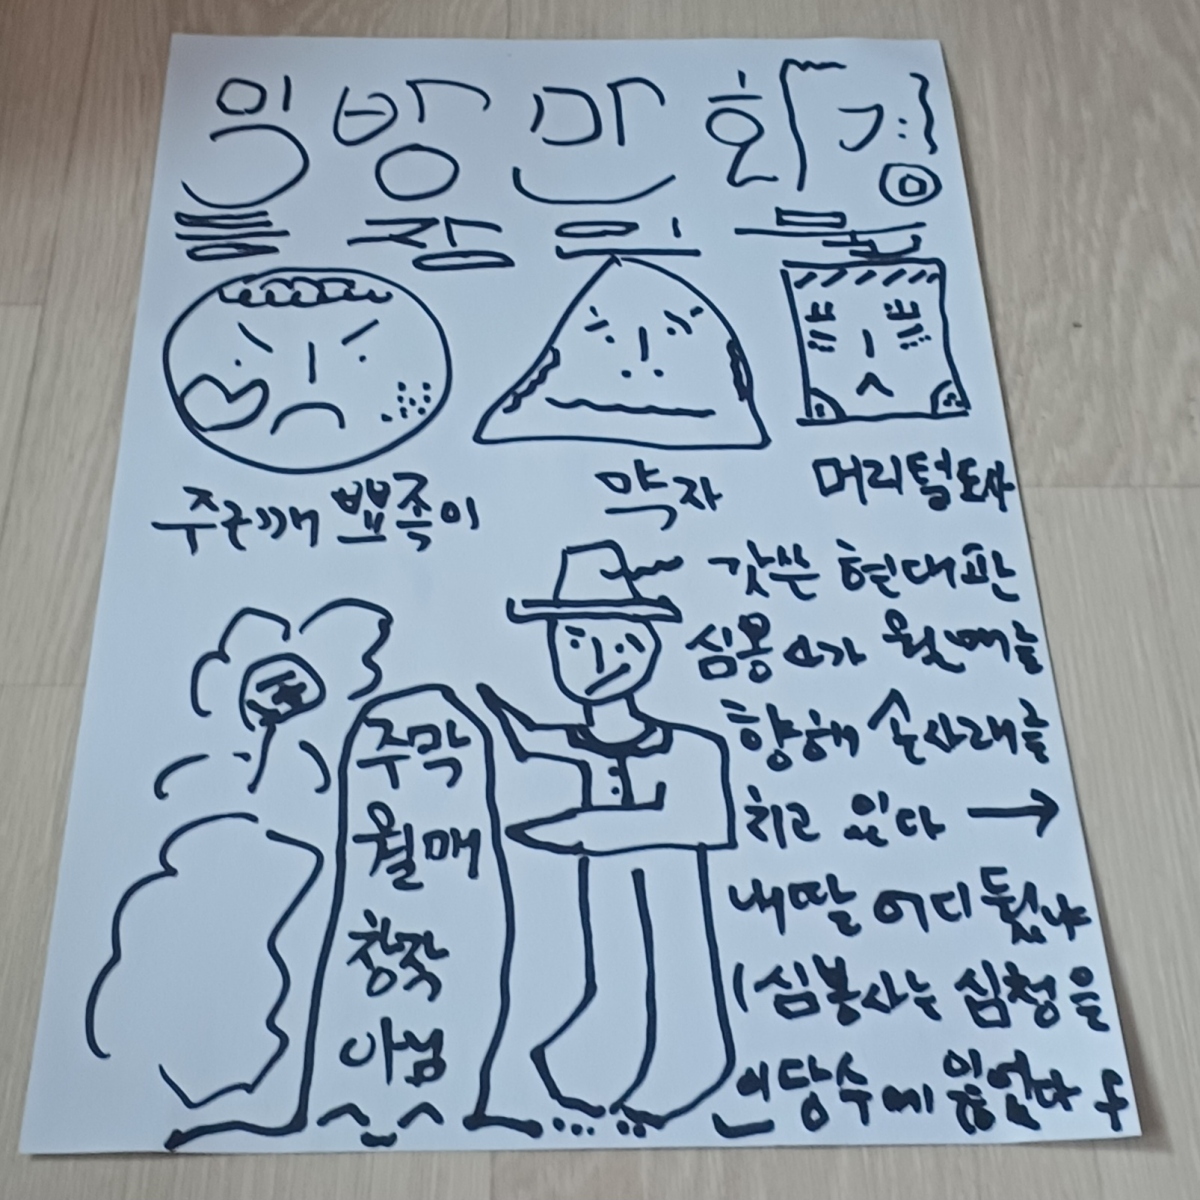 익방만화
등장인물
주근깨 뾰족이
약자
머리털도사
갓쓴 현대판
심봉사가 월매를
향해 손사래를
치고 있다 →
내딸 어디 뒀냐
(심봉사는 심청을
인당수에 잃었다
주막
월매
창작
아님